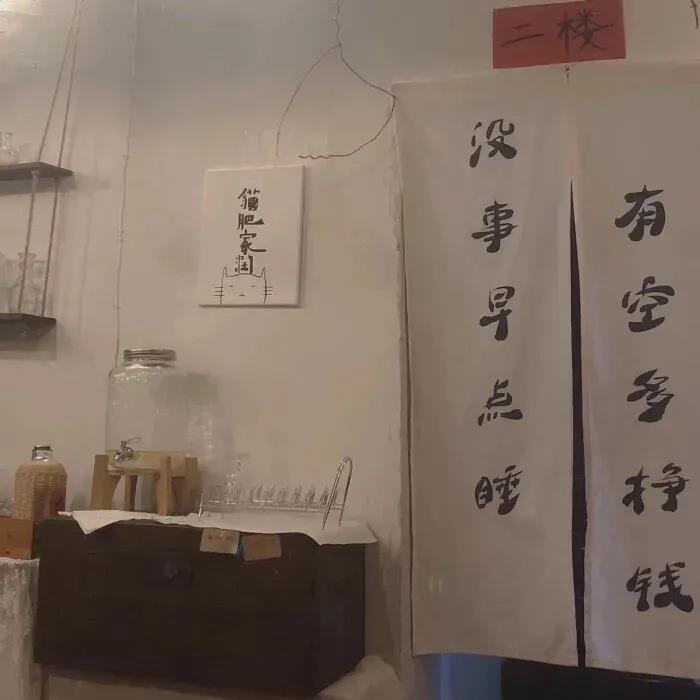 二楼
有空多挣钱
没事早点睡
猫肥家润